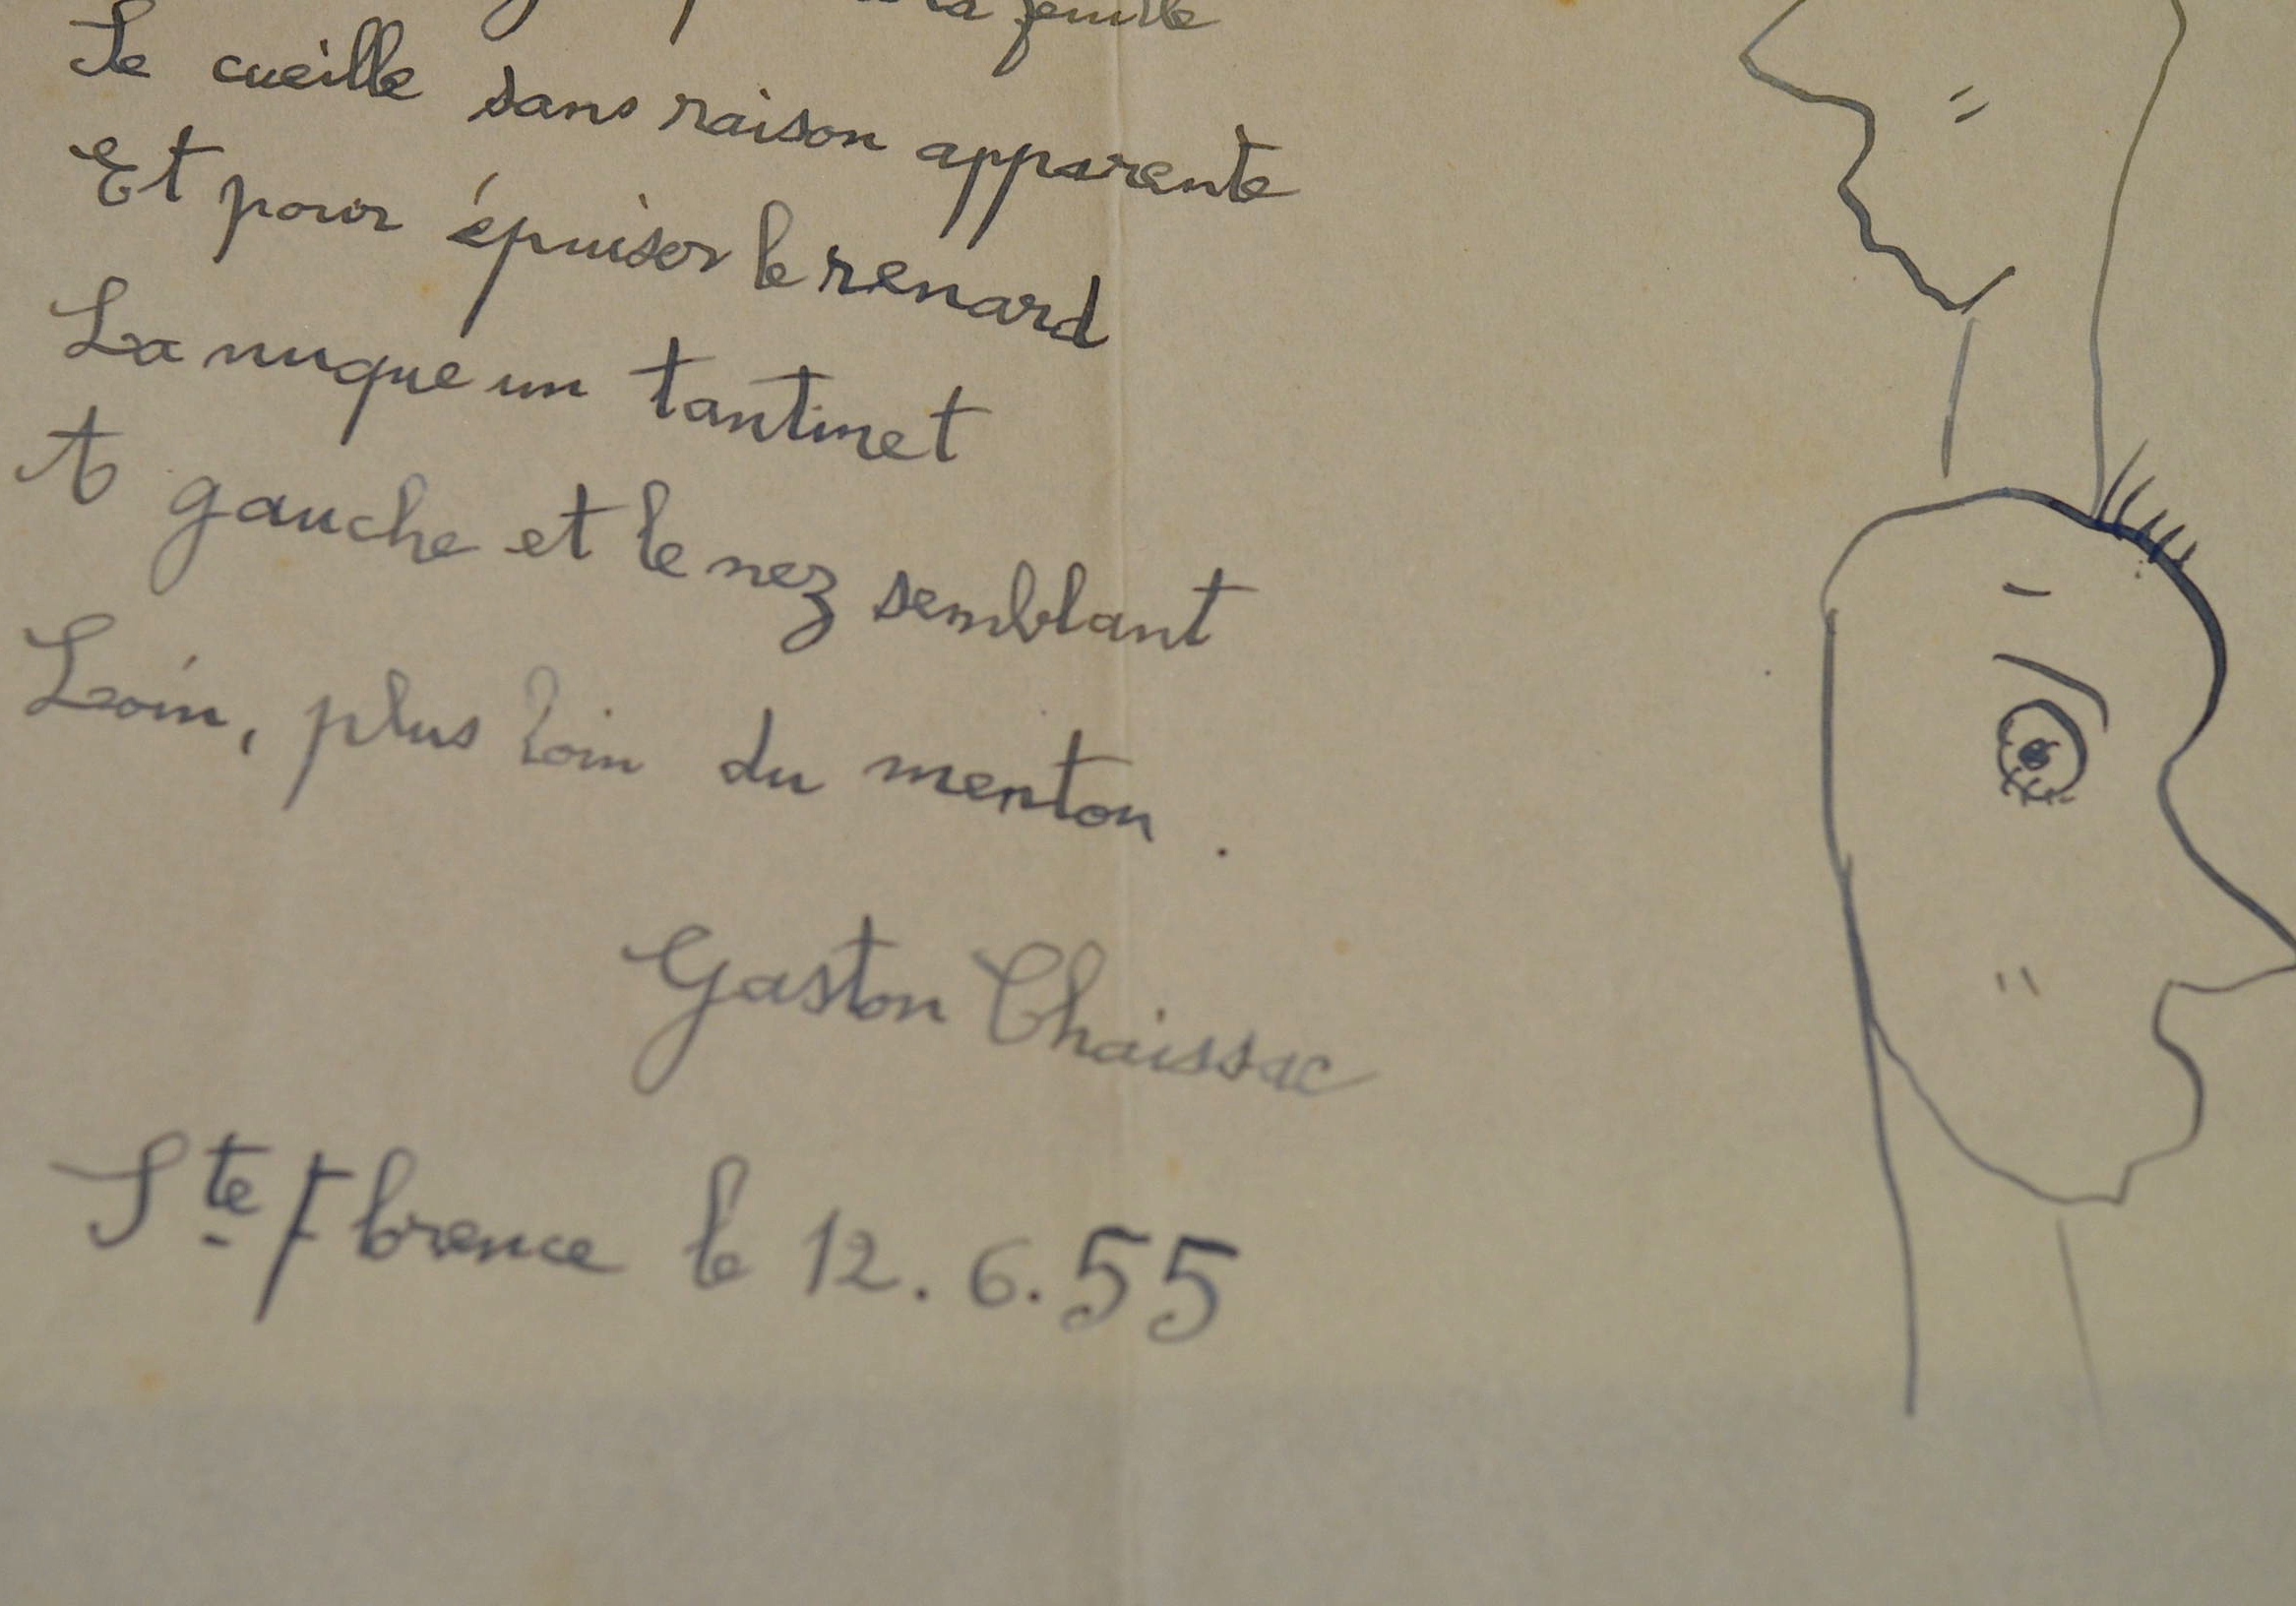 feuille
Je cueille sans raison apparente
Et pour épuiser le renard
La nuque un tantinet
A gauche et le nez semblant
Loin, plus loin du menton.
Gaston Chaissac
Ste Florence le 12.6.55